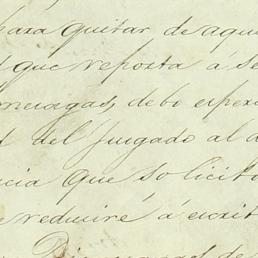 para quitar de aque
que reposta á se
menagas, debo espera
del juzgado al a
cia que solicito
reduciré á escrit